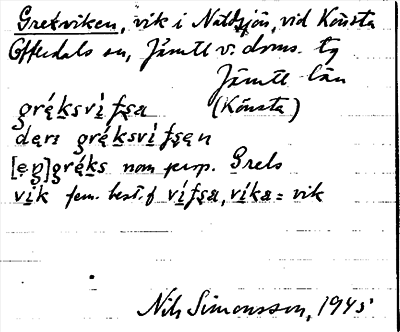 Greksviken, vik i Näldsjön, vid Könsta
Offerdals sn, Jämtl. v. doms. tg
Jämtl län
gréksvífsa (Könsta)
den gréksvífsen
[en] gréks nom. pop. Grels
vík fem. best. f vífsa, víka = vik
Nils Simonsson, 1945